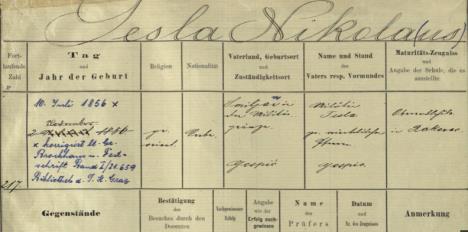 Tesla Nikola(us)
Fort-
laufende
Zahl
Tag
und
Jahr der Geburt
Religion
Nationalität
Vaterland, Geburtsort
und
Zuständigkeitsort
Name und Stand
des
Vaters resp. Vormundes
Maturitäts-Zeugniss
und
Angabe der Schule, die es
ausstellte
10. Juli 1856 x
2
x korrigiert lt.
Brockhaus
Band
Bibliothek d. T. H. Graz
217.
gr.
orient.
Serbe
Smiljan in
der Militär
grenze.
Gospić
Militin
Tesla
gr.
Pfarrer
Gospić
in Rakovac
Gegenstände
Bestätigung
des
Besuches durch den
Docenten
Erfolg
Angabe
wie der
Erfolg nach-
gewiesen
Name
des
Prüfers
Datum
und
Nr. des Zeugnisses
Anmerkung